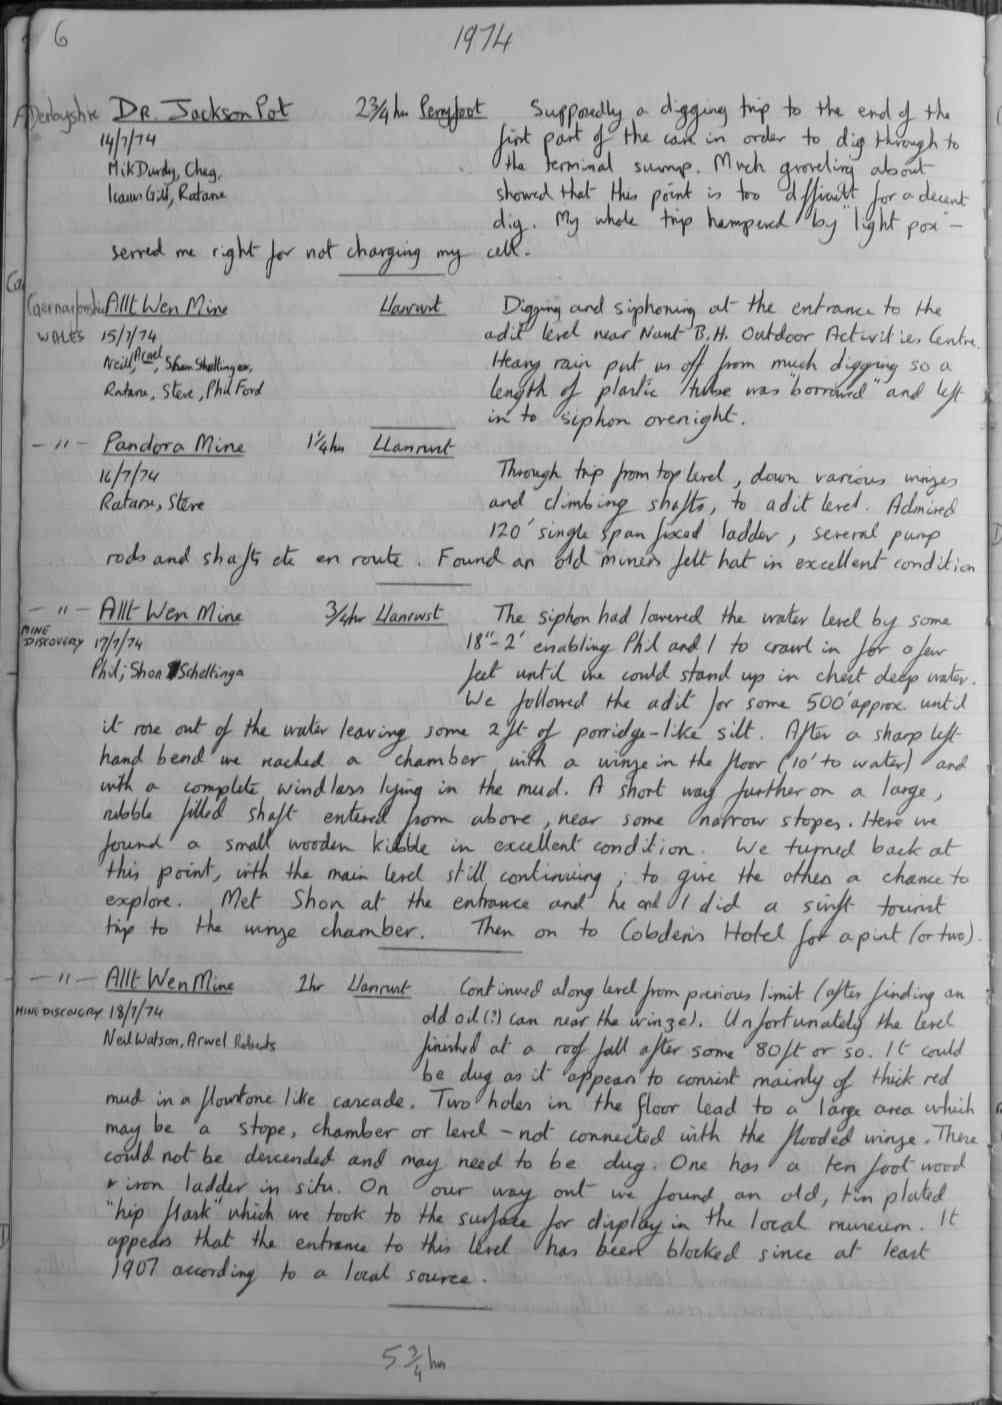 6
1974
Derbyshire DR. Jackson Pot 2 3/4 hrs Perryfoot Supposedly a digging trip to the end of the
14/7/74 first part of the cave in order to dig through to
Mik Durdy, Cheg, the terminal sump. Much groveling about
Gill, Ratarse showed that this point is too difficult for a decent
dig. My whole trip hampered by "light pox" –
served me right for not charging my cell.
Caernarfonshire Allt Wen Mine Llanrwst Digging and siphoning at the entrance to the
WALES 15/7/74 adit level near Nant B.H. Outdoor Activities Centre.
Neill, Arwel, Shon Shellinger, Heavy rain put us off from much digging so a
Ratarse, Steve, Phil Ford length of plastic tube was "borrowed" and left
in to siphon overnight.
– " – Pandora Mine 1 1/4 hrs Llanrwst
16/7/74 Through trip from top level, down various winzes
Ratarse, Steve and climbing shafts, to adit level. Admired
120' single span fixed ladder, several pump
rods and shafts etc en route. Found an old miners felt hat in excellent condition
– " – Allt Wen Mine 3/4 hr Llanrwst The siphon had lowered the water level by some
MINE DISCOVERY 17/7/74 18"-2' enabling Phil and I to crawl in for a few
Phil, Shon Schellinga feet until we could stand up in chest deep water.
We followed the adit for some 500' approx until
it rose out of the water leaving some 2 ft of porridge-like silt. After a sharp left
hand bend we reached a chamber with a winze in the floor (10' to water) and
with a complete windlass lying in the mud. A short way further on a large,
rubble filled shaft entered from above, near some narrow stopes. Here we
found a small wooden kibble in excellent condition. We turned back at
this point, with the main level still continuing, to give the others a chance to
explore. Met Shon at the entrance and he and I did a swift tourist
trip to the winze chamber. Then on to Cobdens Hotel for a pint (or two).
– " – Allt Wen Mine 1hr Llanrwst Continued along level from previous limit (after finding an
MINE DISCOVERY 18/7/74 old oil (?) can near the winze). Unfortunately the level
Neil Watson, Arwel Roberts finished at a roof fall after some 80ft or so. It could
be dug as it appears to consist mainly of thick red
mud in a flowstone like cascade. Two holes in the floor lead to a large area which
may be a stope, chamber or level – not connected with the flooded winze. These
could not be descended and may need to be dug. One has a ten foot wood
& iron ladder in situ. On our way out we found an old, tin plated
"hip flask" which we took to the surface for display in the local museum. It
appears that the entrance to this level has been blocked since at least
1907 according to a local source.
5 3/4 hrs